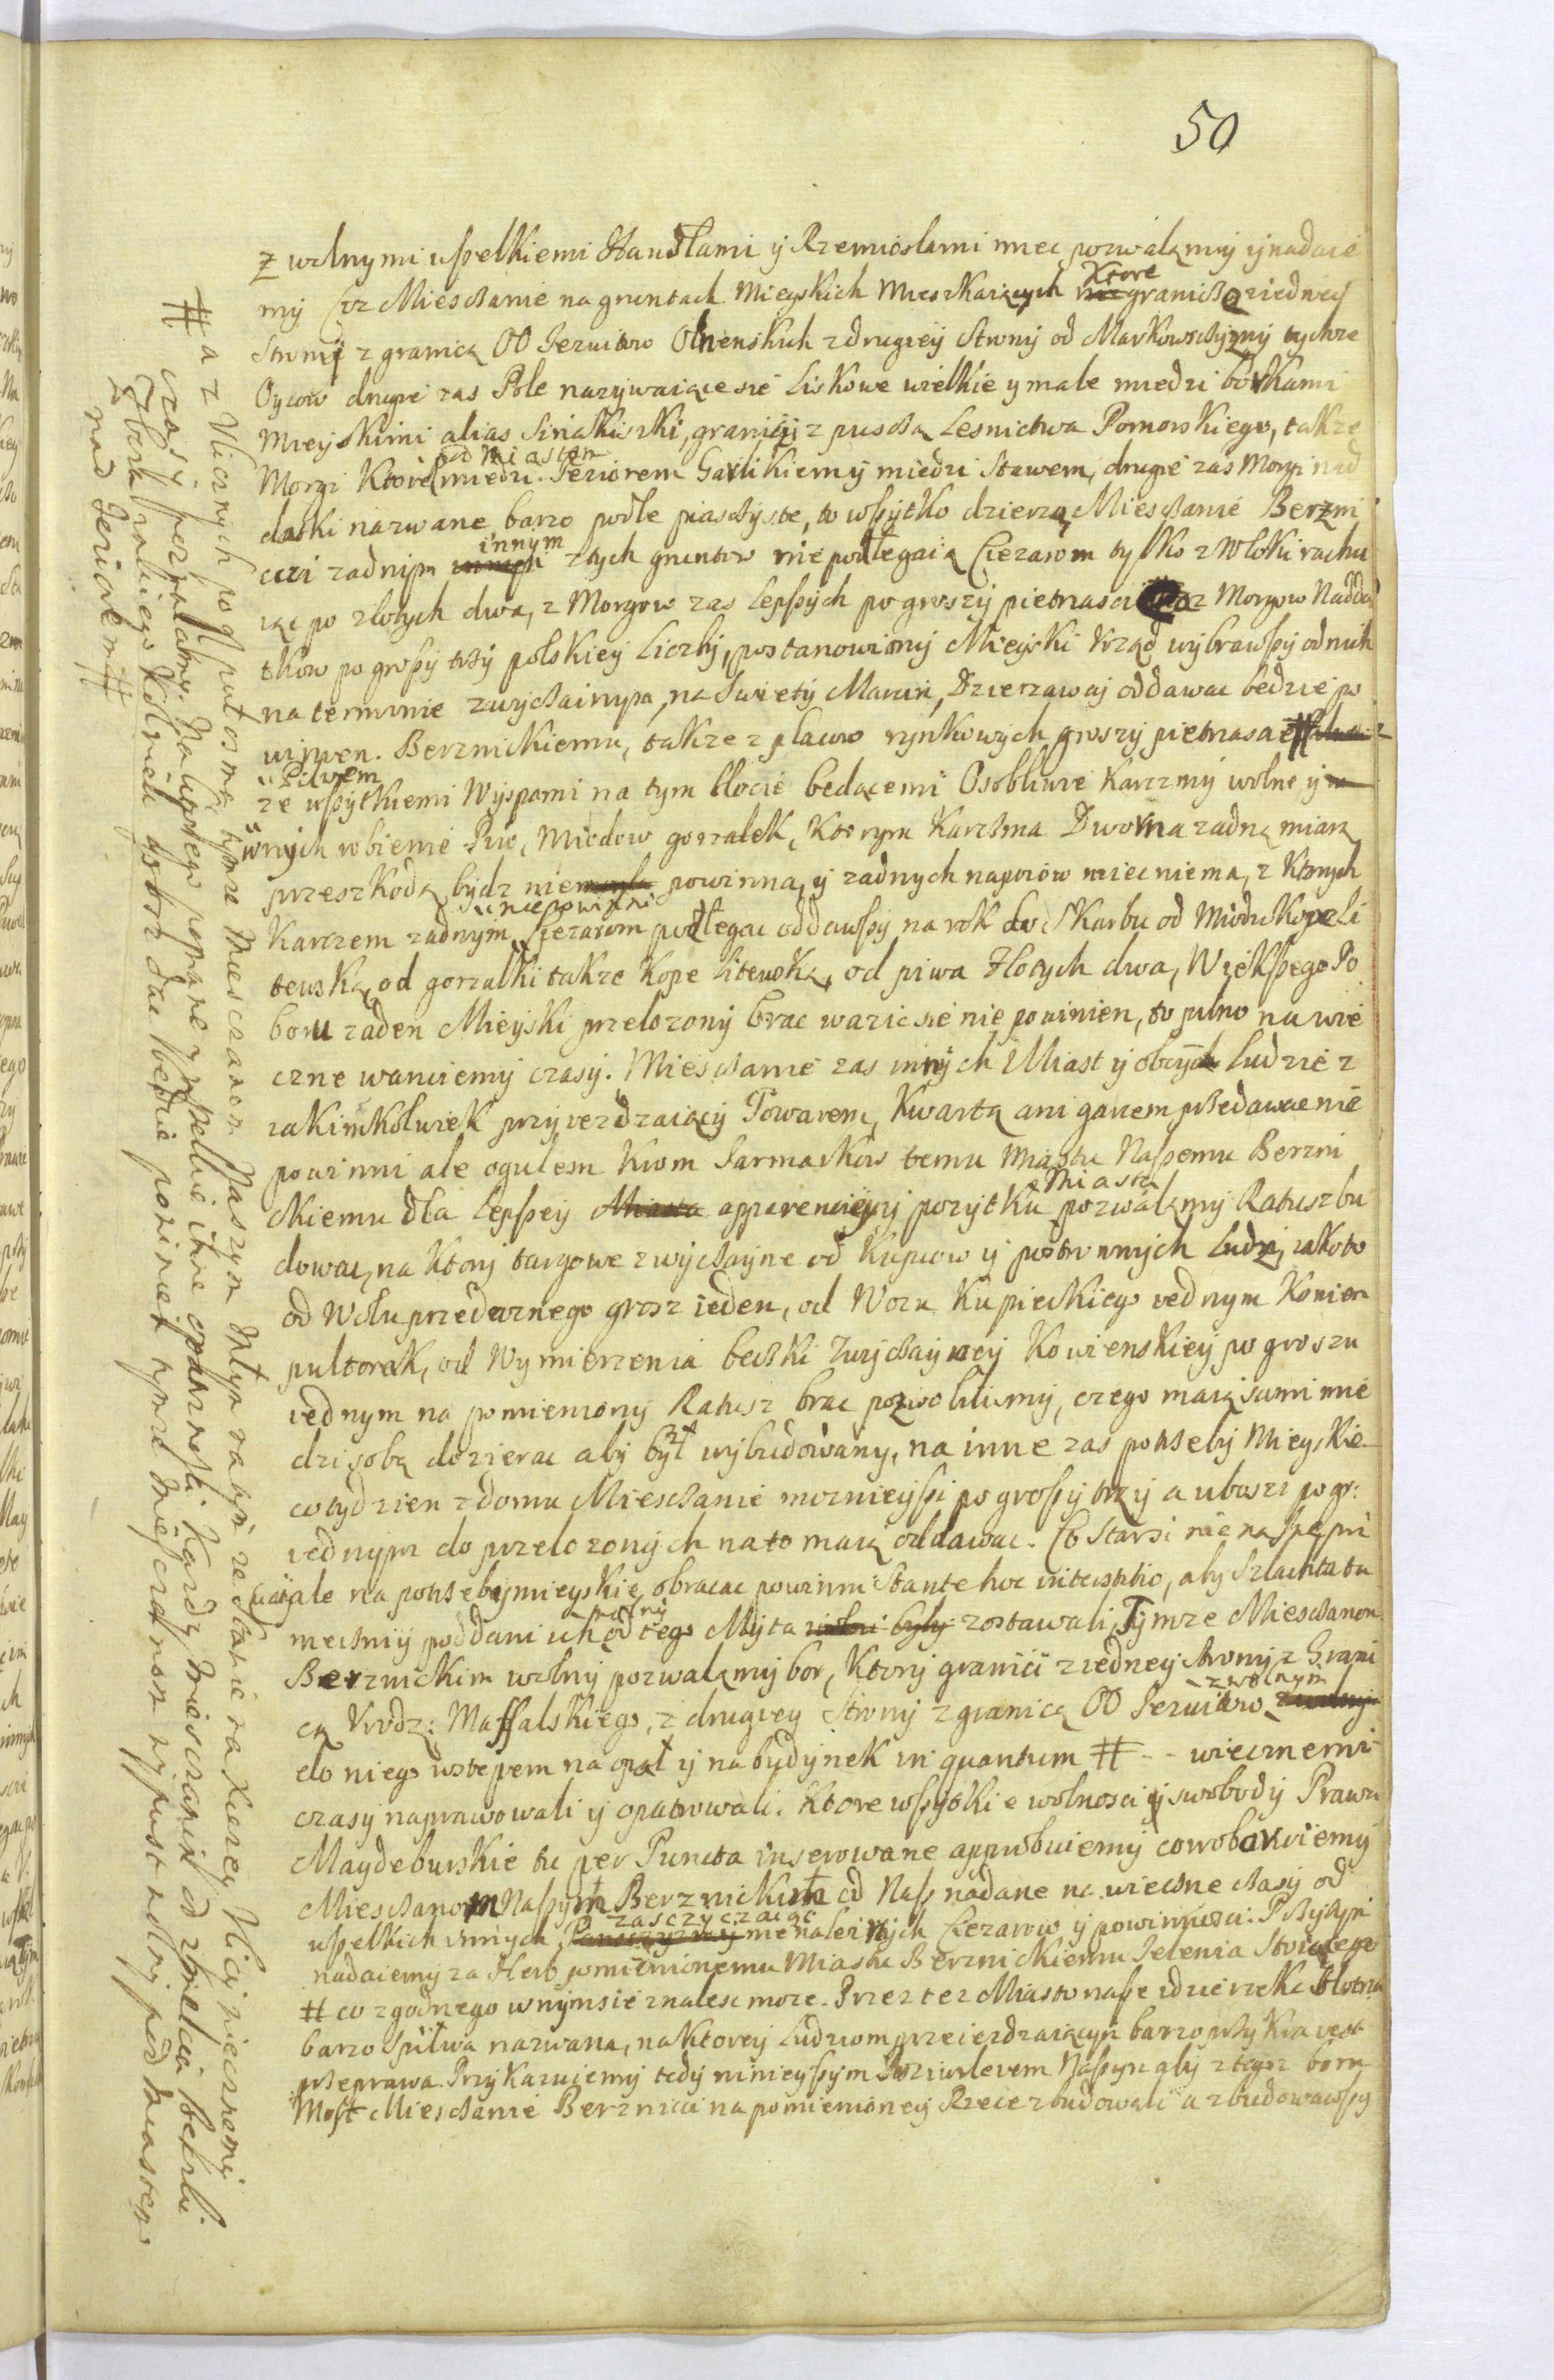 50
z wolnymi wszelkiemi Handlami ÿ Rzemiosłami miec pozwalamy ÿ nadaie
mÿ Coz Miesczanie na gruntach Mieyskich Mieszkaiących Ktore graniczą z iedneÿ
Stronÿ z granicą OO Jezuitow z drugieÿ Stronÿ od Markowsczÿznÿ tychze
Oycow drugie zas Pole nazywaiące sie Liskowe wielkie y małe miedzi borkami
Mieÿskimi alias Siniakiszki, graniczÿ z pusczą Lesnictwa Pomorskiego, takze
Morgi Ktore pod miastem miedzi Jeziorem Gailikiem ÿ miedzi Stawem, drugie zas Morgi nad
datki nazwane barzo podłe piasczÿste, to wszÿtko dzierzą Miesczanie Berzni
cczi zadnÿm innym z tych gruntow nie podlegaią Ciezarom tylko z Włoki rachu
iąc po złotych dwa, z Morgow zas lepszÿch po groszÿ pietnascie z Morgow Nadda
tkow po groszÿ trzÿ polskieÿ Liczbÿ, postanowionÿ Mieÿski Vrząd wÿbrawszÿ od nich
na terminie zwÿczainÿm, na Swietÿ Marcin, Dzierzawcÿ oddawac bedzie po
winien Berznickiemu, takze z placow rÿnkowÿch groszÿ pietnascie #
ze wszÿtkiemi Wÿspami na tym błocie bedącemi Osobliwie Karczmÿ wolne ÿ w
nich robienie Piw, Miodow gorzałek, Ktorym Karczma Dworna zadną miarą
przeszkodą bÿdz nie powinna, ÿ zadnych napoiow miec nie ma, z Ktorych
Karczem zadnym niepowinni Ciezarom podlegac oddawszÿ na rok do Skarbu od Miodu Kope Li
tewską, od gorzałki takze Kope Litewską, od piwa Złotych dwa, Wiekszego Po
boru zaden Mieÿski przełozonÿ brac wazic sie nie powinien, to pilno na wie
czne waruiemÿ czasÿ. Miesczanie zas innÿch Miast ÿ obcÿch ludzie z
iakimkolwiek przÿiezdzaiącÿ Towarem, Kwartą ani garcem przedawac nie
powinni ale ogulem krom Jarmarkow temu Miastu Naszemu Berzni
ckiemu dla lepszeÿ Miasta apparenciÿ ÿ pozÿtku pozwalamÿ Ratusz bu
dowac, na Ktorÿ targowe zwÿczaÿne od Kupcow ÿ postronnÿch Ludzi, iakoto
od Wołu przedaznego grosz ieden, od Wozu Kupieckiego iednym Koniem
pultorak, od Wymierzenia beczki Zwÿczaÿneÿ Kowienskieÿ po groszu
iednym na pomienionÿ Ratusz brac pozwolilismÿ, czego maią sami mie
dzi sobą dozierac abÿ bÿł wÿbudowanÿ, na inne zas potrzebÿ Mieÿskie
co tÿdzien z domu Miesczanie moznieÿszi po groszÿ trzÿ a ubozsi po gr:
iednÿm do przełozonÿch na to maią oddawac. Co Starsi nie na swą pri
watę ale na potrzebÿ mieÿskie, obracac powinni Stante hoc aby Szlachta tu
mecznÿ poddani ich od tego Mÿta wolnÿ zostawali, Tÿmze Miesczanom
Berznickim wolnÿ pozwalamÿ bor, Ktorÿ graniczi z iedneÿ stronÿ z Grani
cą Vrodz: Massalskiego, z drugieÿ Stronÿ z granicą OO Jezuitow z wolnym
do niego wstepem na opał ÿ na budÿnek in quantum # - - wiecznemi
czasÿ naprawowali ÿ opatrowali. Ktore wszÿtkie wolnosci ÿ swobodÿ Prawu
Maÿdeburskie tu per Puncta inserowane approbuiemÿ corroboruiemÿ
Miesczanom Naszÿm Berznickim od Nas nadane na wieczne czasÿ od
wszelkich innÿch zasczÿczaiąc nienaleznÿch Ciezarow ÿ powinnosci. Przÿtÿm
nadaiemÿ za Herb pomienionemu Miastu Berznickiemu Jelenia Stoiącego
# co zgodnego w nÿm sie znalesc moze. Przez tez Miasto nasze idzie rzeka błotna
barzo nazwana, na Ktoreÿ Ludziom przeiezdzaiącÿm barzo przÿkra iest
przeprawa. Przÿkazuiemÿ tedÿ ninieÿszÿm Przÿwileiem Naszym abÿ z tego boru
Most Miesczanie Berznicci na pomienioneÿ Rzece zbudowali a zbudowawszÿ
# a z Vlicznych po
czasÿ pozwalamÿ
nad Jeziorem #